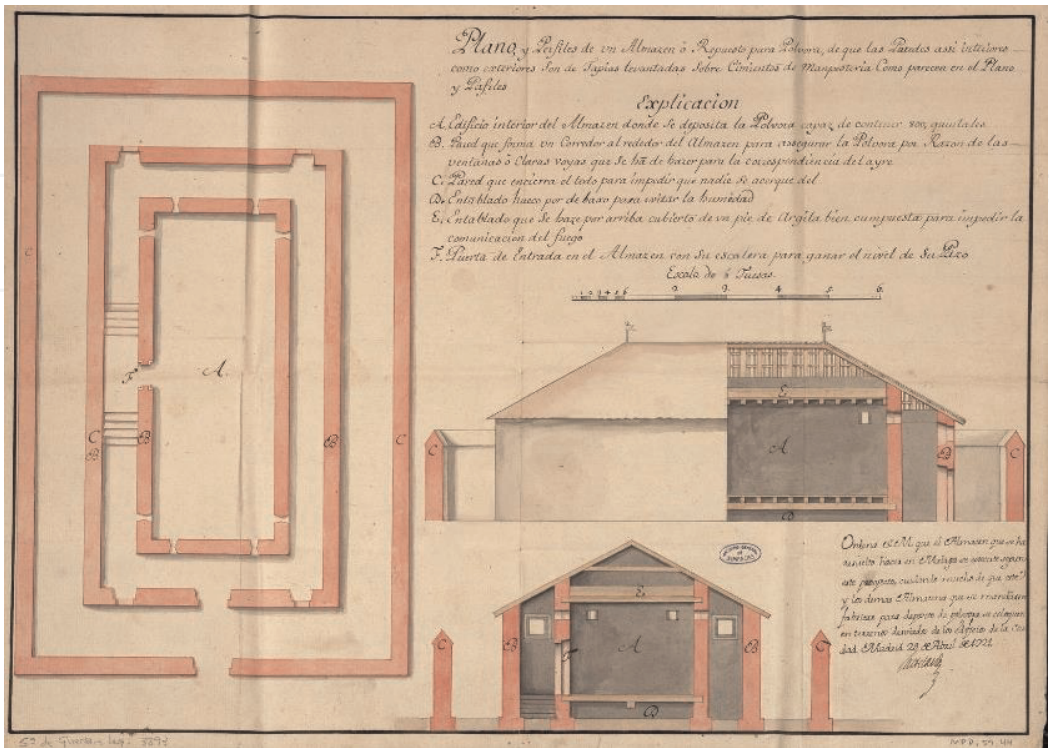 Plano, y Perfiles de vn Almazen ò Repuesto para Polvora, de que las Paredes assi interiores
como exteriores Son de Tapias levantadas Sobre Cimientos de Manposteria Como parecen en el Plano
y Pŕfiles
Explicacion
A. Edificio interior del Almazen donde se deposita la Polvora capaz de contener quintales
B. Pared que forma vn Corredor al rededor del Almazen para assegurar la Polvora por Razon de las
ventanas ò Claras voyas que se ha de hazer para la correspondencia del ayre
C. Pared que encierra el todo para impedir que nadie se acerque del
D. Entablado hueco por de baxo para evitar la humedad
E. Entablado que se haze por arriba cubierto de vn pie de Argila bien compuesta para impedir la
comunicacion del fuego
F. Puerta de Entrada en el Almazen con su escalera para ganar el nivel de su Pizo
Escala de 6 Tuesas
1 2 3 4 5 6 2 3 4 5 6
C
A
F
C B B B C
E
A
C B C
D
Ordena el M. que el Almazen que se ha
resuelto hacer en Malaga se execute segun
este proyecto, cuidando mucho de que este
y los demas Almazenes que se mandasen
fabricar para deposito de polvora se coloquen
en terrenos desviados de los edificios de la ciu
dad. Madrid 29 de Abril de 1721
E
C B F A B C
D
Gª de Guerra leg.
MPD, 59, 44